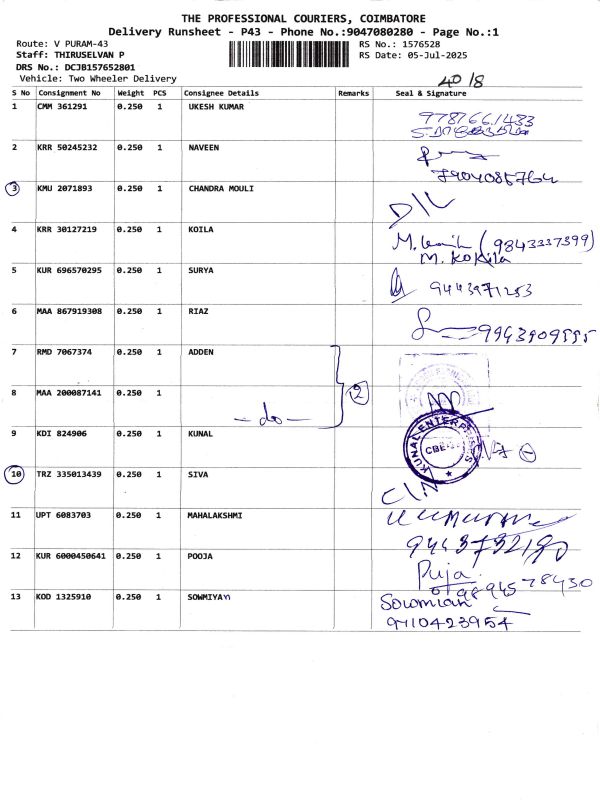 THE PROFESSIONAL COURIERS, COIMBATORE
Delivery Runsheet - P43 - Phone No.:9047080280 - Page No.:1
Route: V PURAM-43
RS No.: 1576528
Staff: THIRUSELVAN P
RS Date: 05-Jul-2025
DRS No.: DCJB157652801
Vehicle: Two Wheeler Delivery
40/8
S No Consignment No Weight PCS Consignee Details Remarks Seal & Signature
1 CMM 361291 0.250 1 UKESH KUMAR
2 KRR 50245232 0.250 1 NAVEEN
7904085764
3 KMU 2071893 0.250 1 CHANDRA MOULI
D/L
4 KRR 30127219 0.250 1 KOILA
(9843337399)
M. Kokila
5 KUR 696570295 0.250 1 SURYA
9443971253
6 MAA 867919308 0.250 1 RIAZ
7 RMD 7067374 0.250 1 ADDEN
2
8 MAA 200087141 0.250 1 - do -
9 KDI 824906 0.250 1 KUNAL
KUNAL ENTERPRISES
CBE
10 TRZ 335013439 0.250 1 SIVA
C/N
11 UPT 6083703 0.250 1 MAHALAKSHMI
12 KUR 6000450641 0.250 1 POOJA
Puja
13 KOD 1325910 0.250 1 SOWMIYAn
Sowmian
9710423954